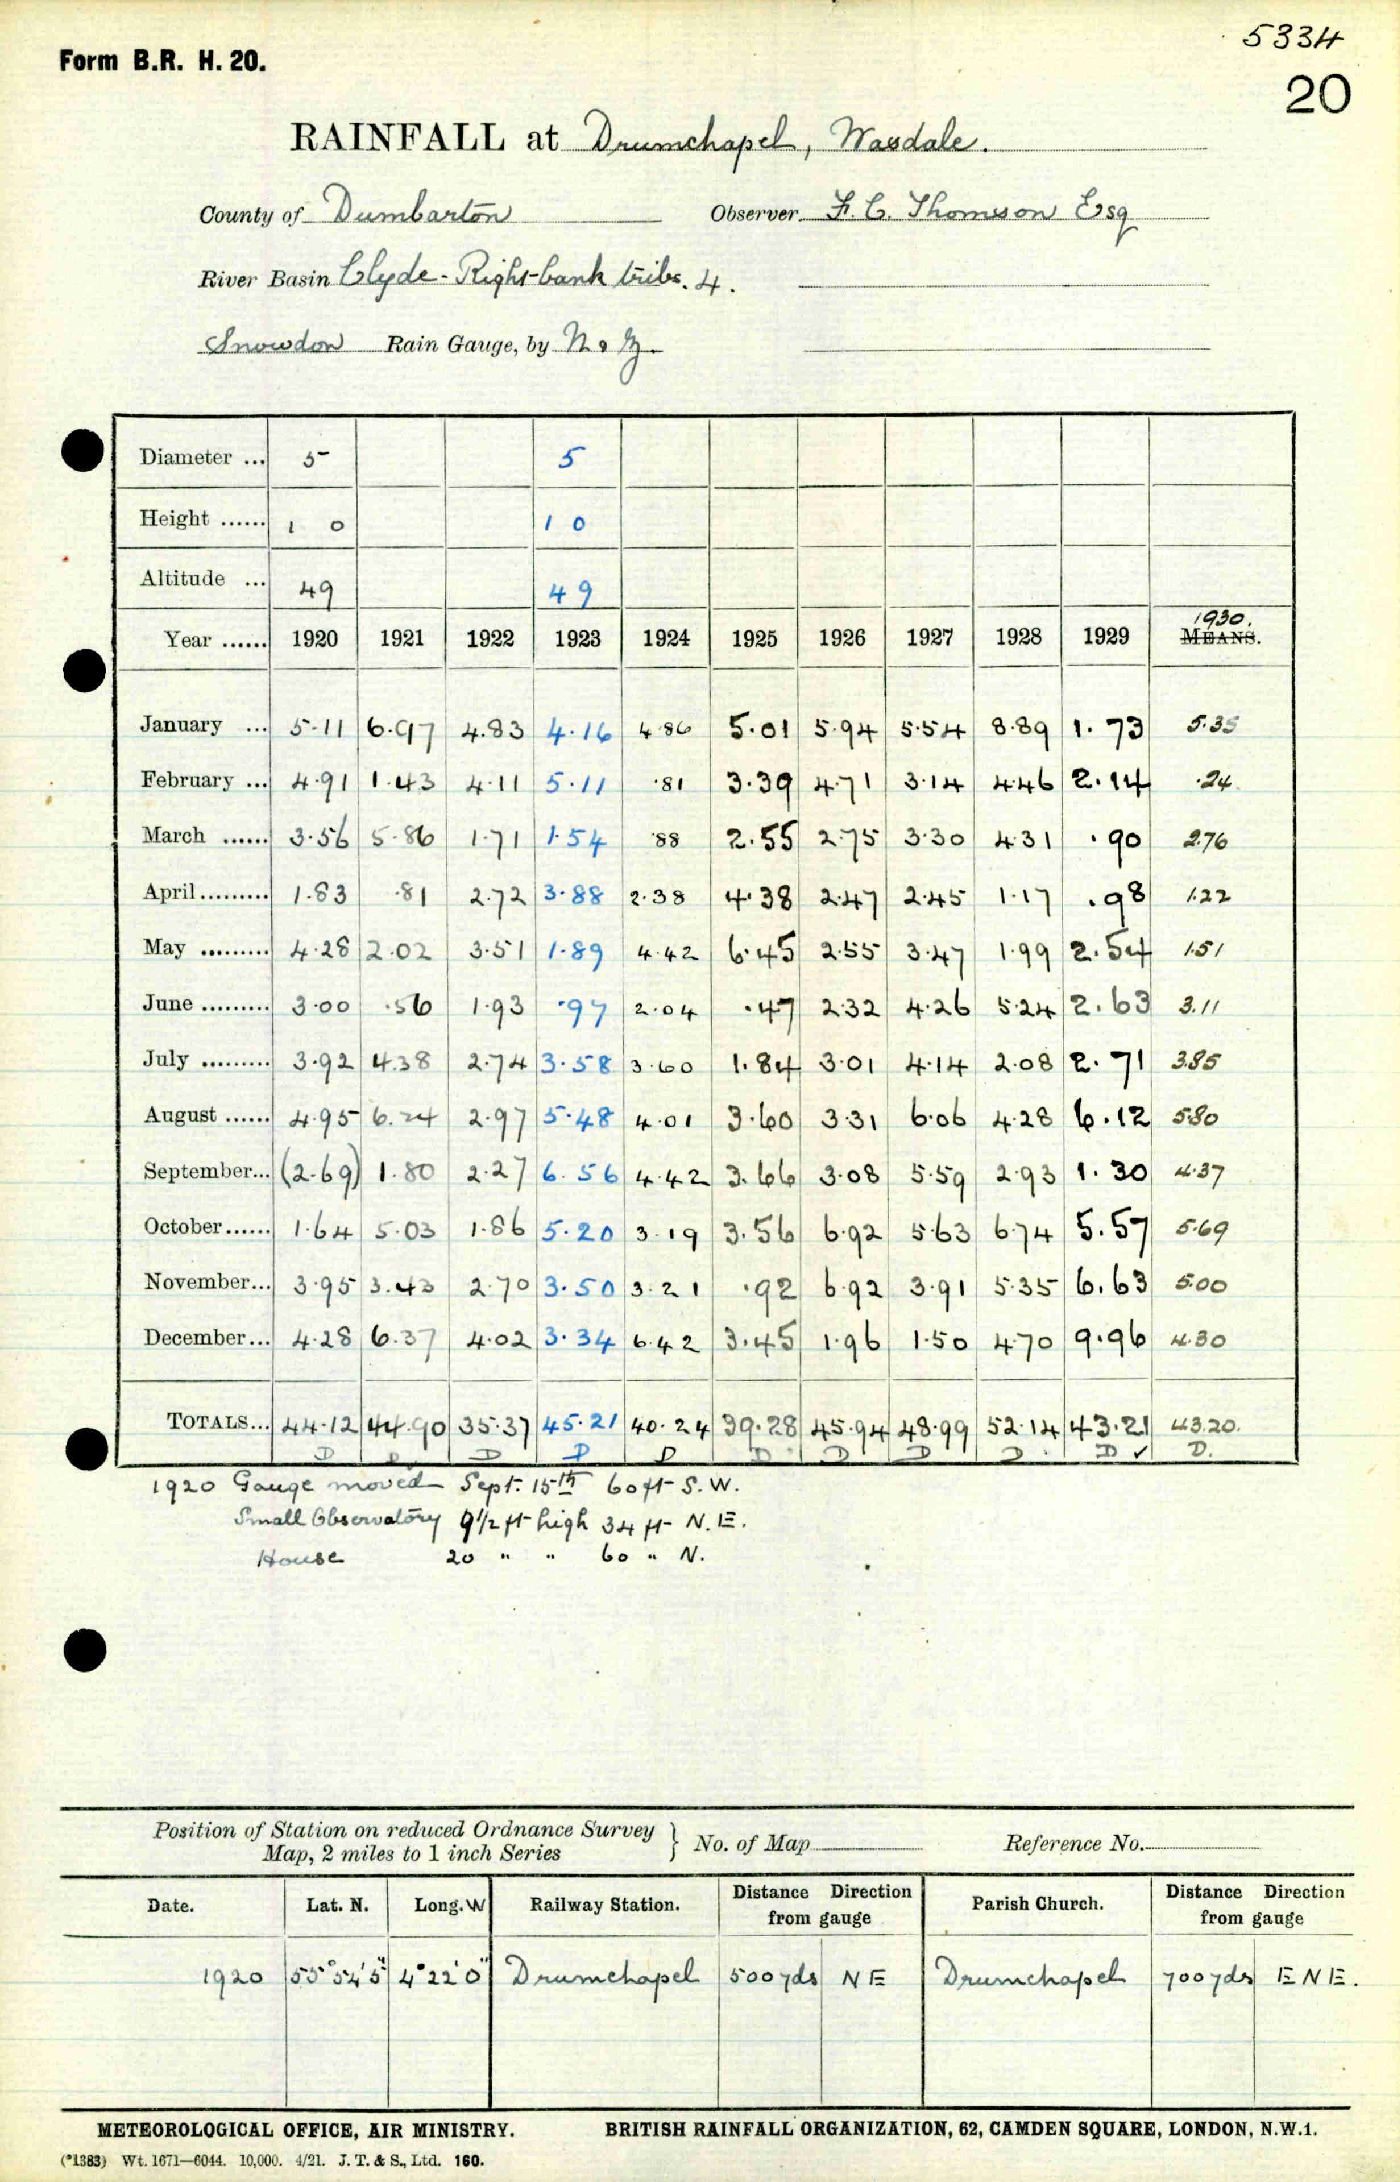 5334
Form B.R. H. 20.
20
RAINFALL at Drumchapel, Wasdale.
County of Dumbarton Observer F. C. Thomson Esq
River Basin Clyde - Right-bank tribs. 4.
Snowdon Rain Gauge, by N & Z.
Diameter ... 5 5
Height ...... 1 0 1 0
Altitude ... 49 49
1930.
Year ...... 1920 1921 1922 1923 1924 1925 1926 1927 1928 1929 MEANS.
January ... 5.11 6.97 4.83 4.16 4.86 5.01 5.94 5.54 8.89 1.73 5.35
February ... 4.91 1.43 4.11 5.11 .81 3.39 4.71 3.14 4.46 2.14 .24
March ...... 3.56 5.86 1.71 1.54 .88 2.55 2.75 3.30 4.31 .90 2.76
April......... 1.83 .81 2.72 3.88 2.38 4.38 2.47 2.45 1.17 .98 1.22
May ......... 4.28 2.02 3.51 1.89 4.42 6.45 2.55 3.47 1.99 2.54 1.51
June ......... 3.00 .56 1.93 .97 2.04 .47 2.32 4.26 5.24 2.63 3.11
July ......... 3.92 4.38 2.74 3.58 3.60 1.84 3.01 4.14 2.08 2.71 3.85
August ...... 4.95 6.24 2.97 5.48 4.01 3.60 3.31 6.06 4.28 6.12 5.80
September... (2.69) 1.80 2.27 6.56 4.42 3.66 3.08 5.59 2.93 1.30 4.37
October...... 1.64 5.03 1.86 5.20 3.19 3.56 6.92 5.63 6.74 5.57 5.69
November... 3.95 3.43 2.70 3.50 3.21 .92 6.92 3.91 5.35 6.63 5.00
December... 4.28 6.37 4.02 3.34 6.42 3.45 1.96 1.50 4.70 9.96 4.30
TOTALS... 44.12 44.90 35.37 45.21 40.24 39.28 45.94 48.99 52.14 43.21 43.20.
D D D D D D D D D D ✓ D.
1920 Gauge moved Sept. 15th 60 ft S.W.
Small Observatory 9½ ft high 34 ft N.E.
House 20 " " 60 " N.
Position of Station on reduced Ordnance Survey
Map, 2 miles to 1 inch Series } No. of Map Reference No.
Date. Lat. N. Long. W Railway Station. Distance Direction from gauge Parish Church. Distance Direction from gauge
1920 55°54'5" 4°22'0" Drumchapel 500 yds NE Drumchapel 700 yds ENE.
METEOROLOGICAL OFFICE, AIR MINISTRY. BRITISH RAINFALL ORGANIZATION, 62, CAMDEN SQUARE, LONDON, N.W.1.
(*1383) Wt. 1671—6044. 10,000. 4/21. J. T. & S., Ltd. 160.